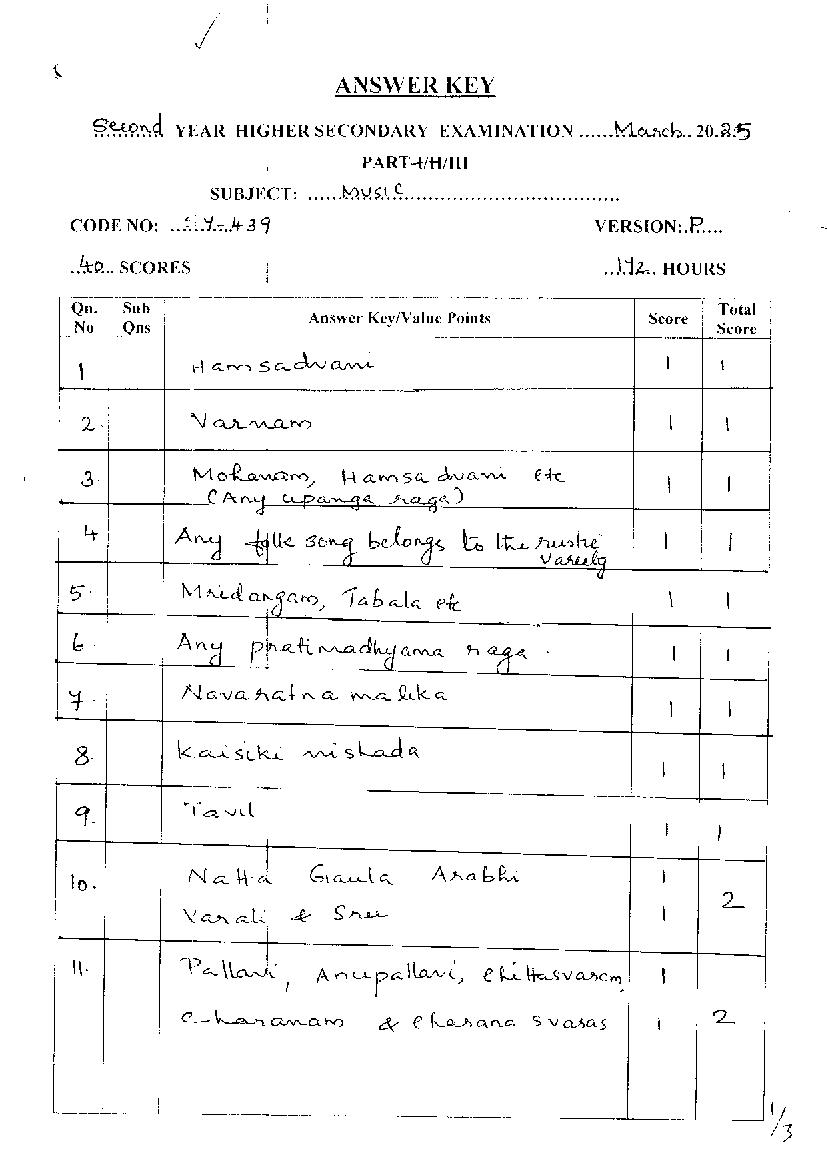 ANSWER KEY
Second YEAR HIGHER SECONDARY EXAMINATION ......March.. 20.25
PART-I/II/III
SUBJECT: ......Music.......................................
CODE NO: ..SY-439
VERSION:.P....
..40.. SCORES
..1½.. HOURS
Qn. No Sub Qns Answer Key/Value Points Score Total Score
1 Hamsadvani 1 1
2. Varnam 1 1
3. Mohanam, Hamsadvani etc
(Any upanga raga) 1 1
4 Any folk song belongs to the rustic
variety 1 1
5. Mridangam, Tabala etc 1 1
6. Any pratimadhyama raga. 1 1
7. Navaratna malika 1 1
8. Kaisiki nishada 1 1
9. Tavil 1 1
10. Natta Gaula Arabhi 1
Varali & Sree 1 2
11. Pallavi, Anupallavi, Chittasvaram, 1
Charanam & Charana svaras 1 2
1/3